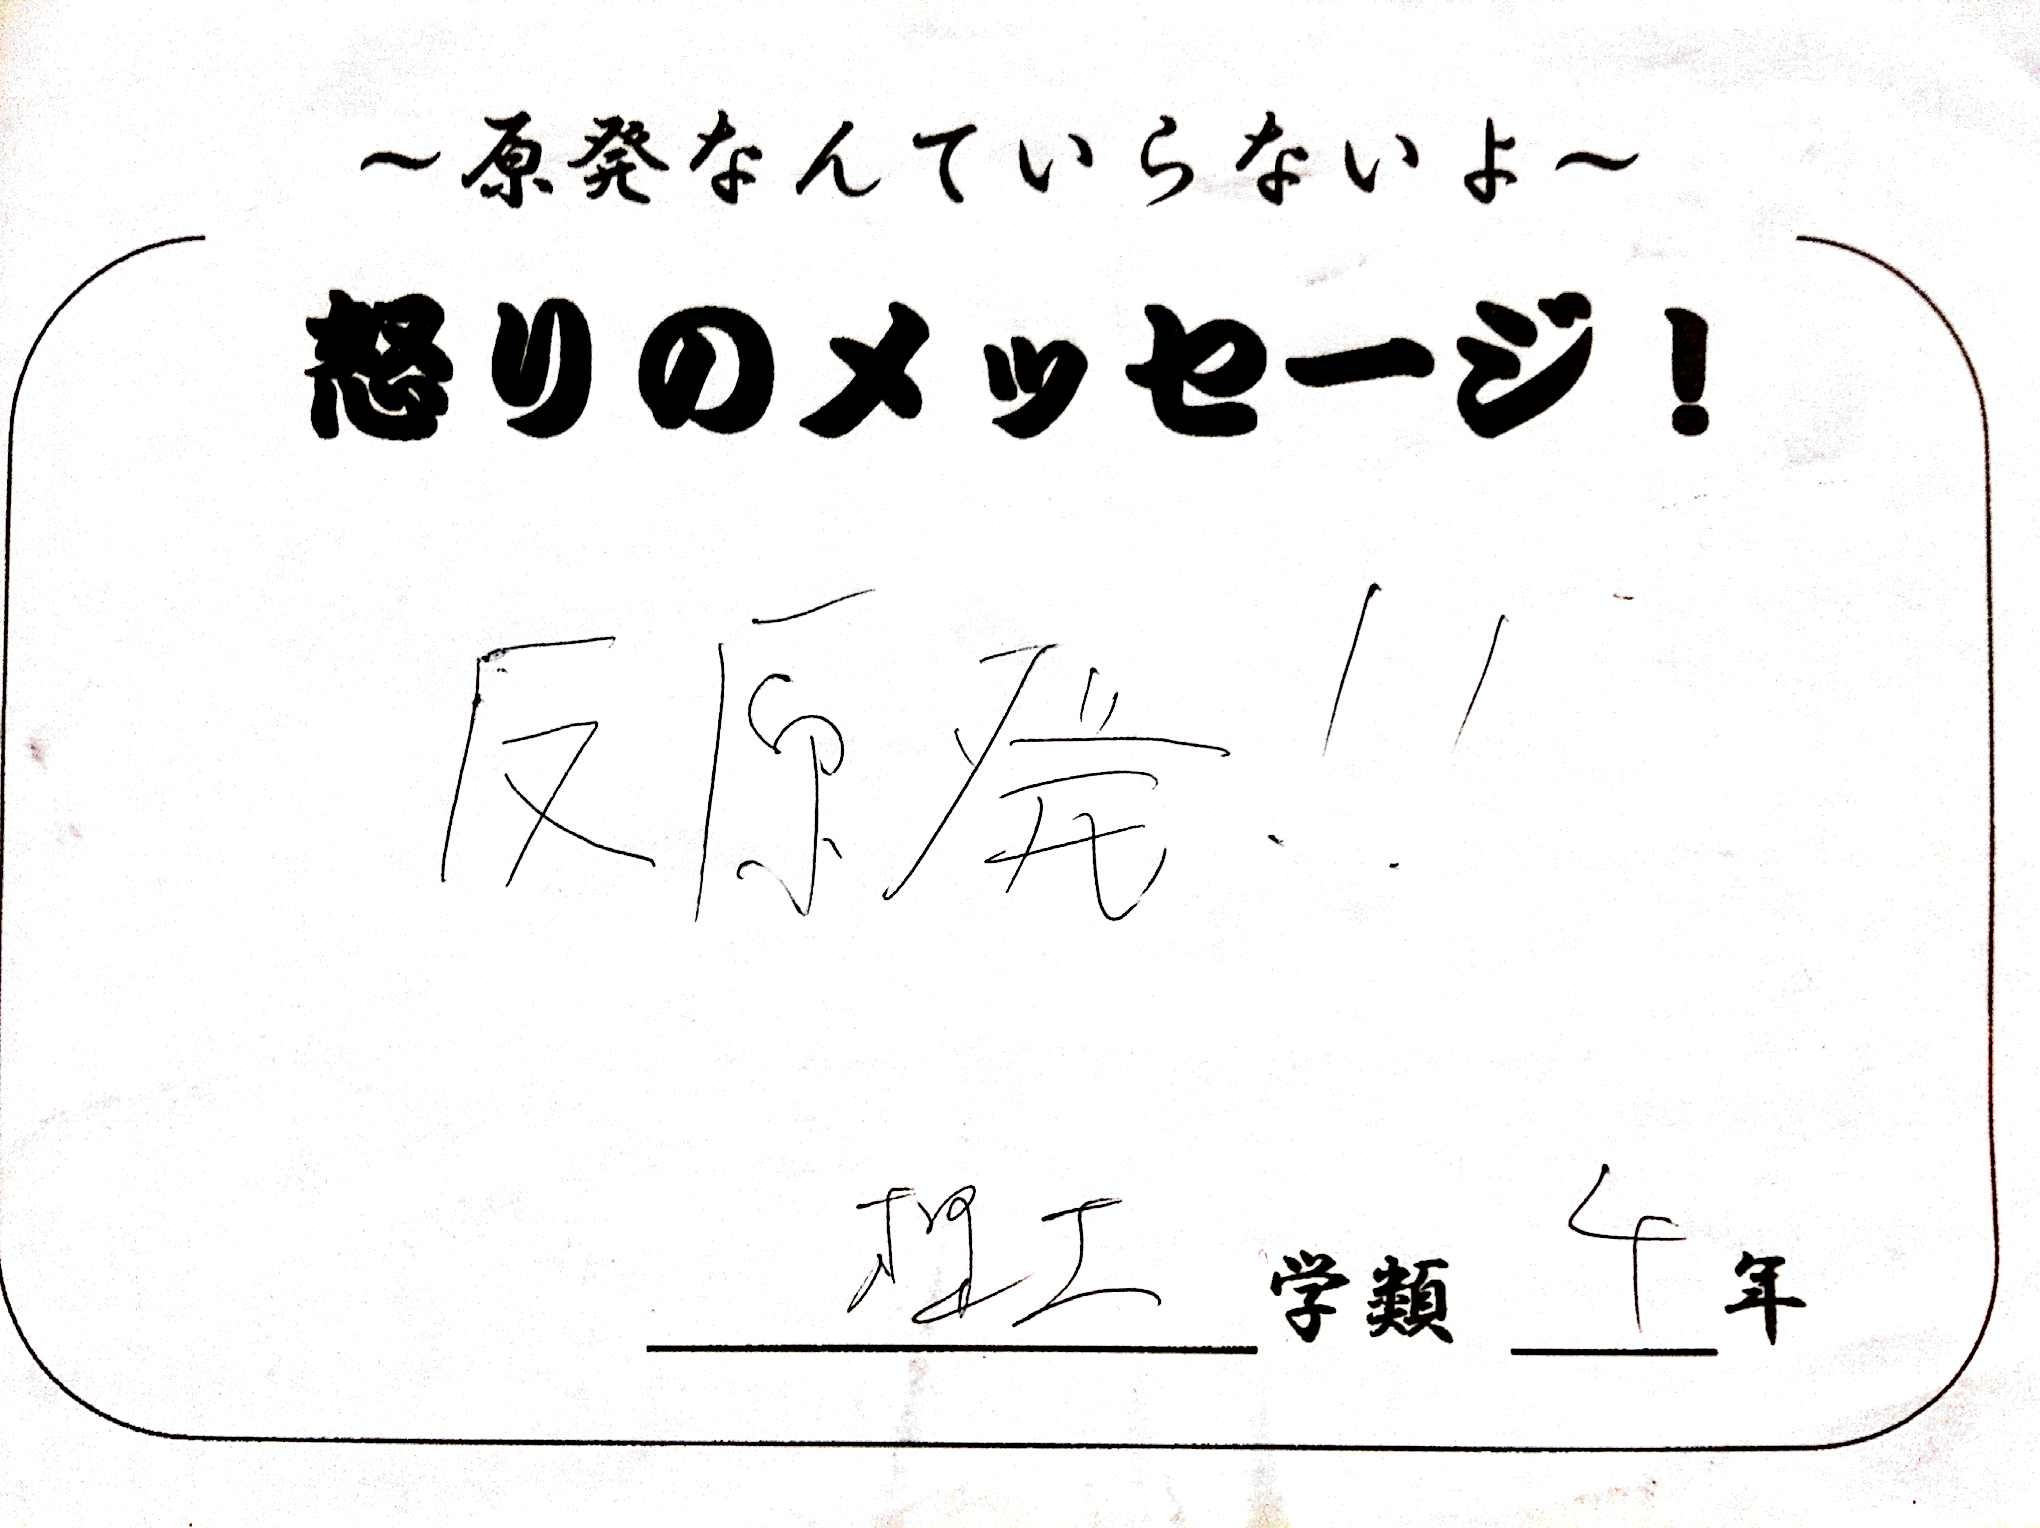 ～原発なんていらないよ～
怒りのメッセージ！
反原発!!
理工学類 4年